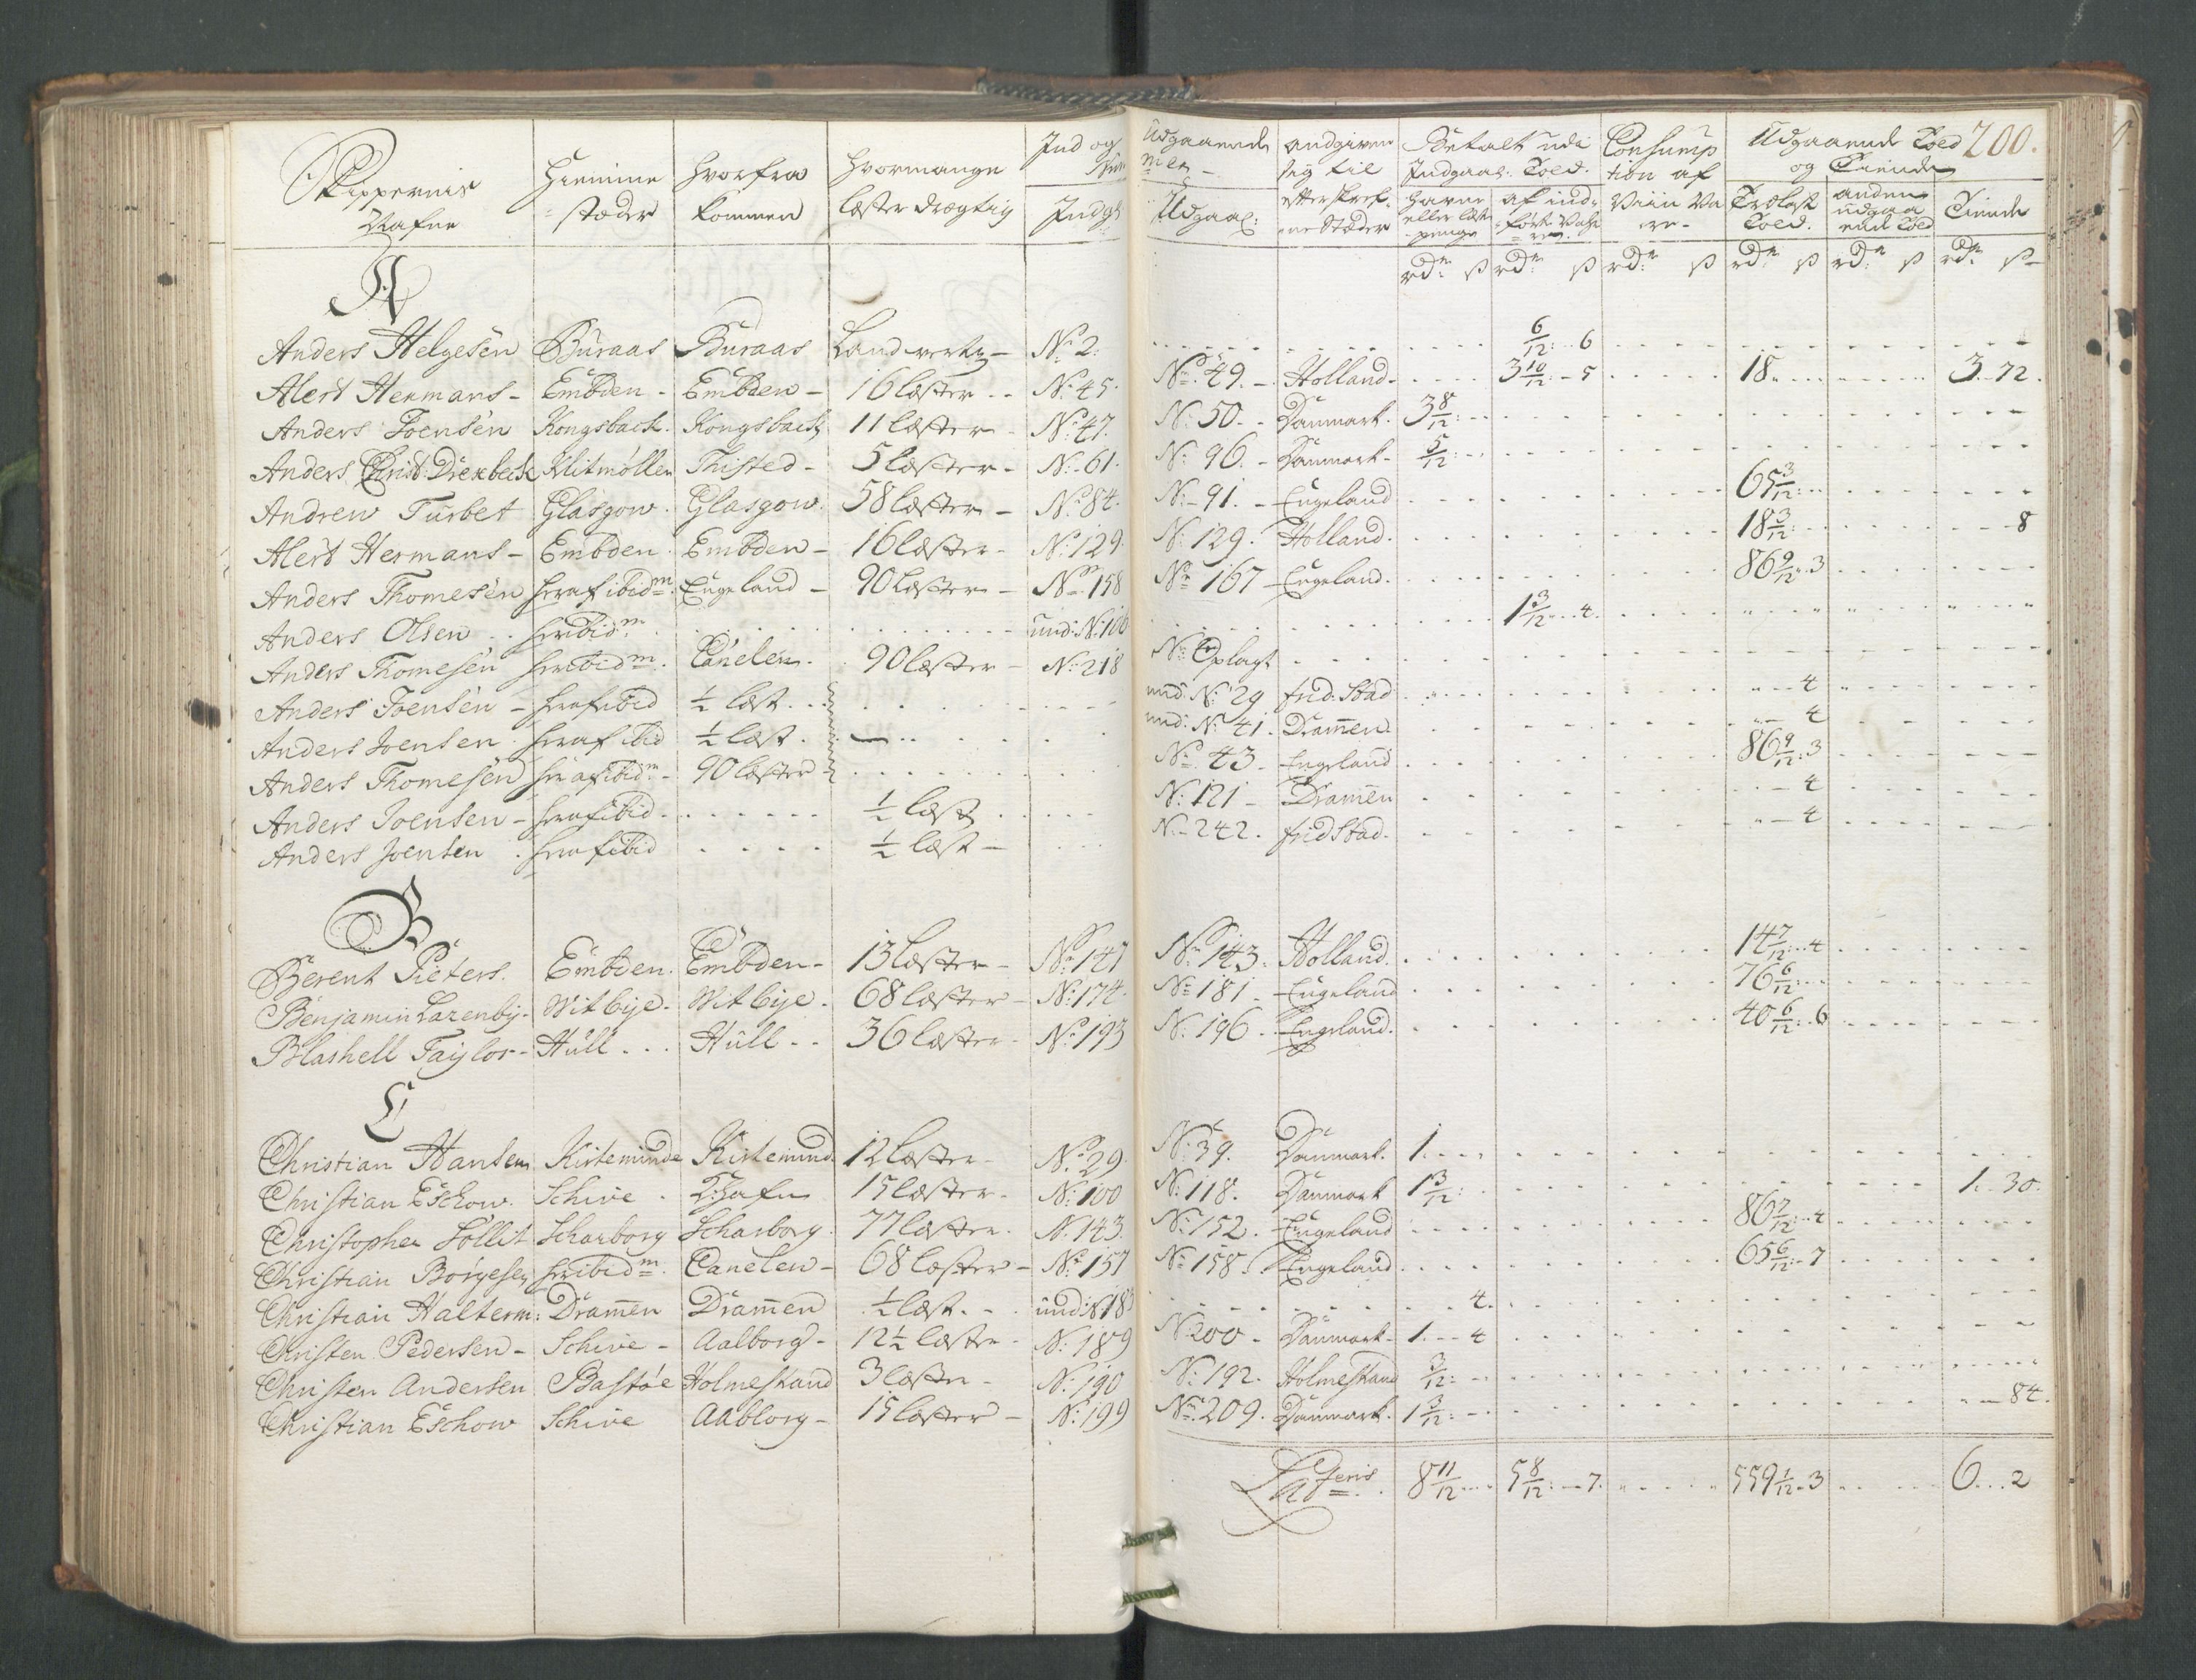 Skippernis Nafne | Hiemme stæder | Hvorfra kommen | Hvormange læster drægtig | Ind og | Indg: | Udgaaende | Udgaa: | andgiven sig til efterskref: ene Stæder | Betalt udi Indgaae: Told. | Havne eller læste penge | af ind: førte Vahre | Consumption af Viin Va re | Udgaaende Told og Tiende | Trælast Told. | anden udgaaende Told | Tiende | 200.
rdr ß | rdr ß | rdr ß | rdr ß | rdr ß | rdr ß
A
Anders Helgesen | Buraas | Buraas | Landverts | No 2. | 6/12 : 6
Alert Hermans | Embden | Embden | 16 læster | No 45. | No 49. | Holland. | 3 10/12 : 5 | 18 | 3 - 72.
Anders Joensen | Kongsback. | Kongsback | 11 læster | No 47. | No 50. | Danmark. | 3 8/12 :
Anders Christ: Dierbeck | Klitmøllen | Thisted | 5 læster | No 61. | No 96. | Danmark | 5/12 :
Andrew Turbet | Glasgow | Glasgow. | 58 læster | No 84. | No 91. | Engeland | 65 3/12 :
Alert Hermans | Embden | Embden | 16 læster | No 129. | No 129. | Holland. | 18 3/12 : | 8
Anders Thomesen | herafibidm. | Engeland | 90 læster | No 158 | No 167 | Engeland. | 86 9/12 . 3
Anders Olsen | heribidm | und: No 100 | 1 3/12 .. 4.
Anders Thomesen | heribidm. | Canelen. | 90 læster | No 218 | No Oplagt
Anders Joensen | herafibid | 1/2 læst | und: No 29 | frid. Stad | 4
Anders Joensen | heraf ibid | 1/2 læst | und: No 41. | Dramen | 4
Anders Thomesen | herafibidm | 90 læster | No 43 | Engeland | 86 9/12 : 3
Anders Joensen | herafibid | 1/2 læst | No 121 | Dramen | 4
Anders Joensen | herafibid | 1/2 læst | No 242. | fridStad. | 4
B
Berent Pieters. | Embden. | Embden | 13 læster | No 147 | No 143. | Holland. | 14 7/12 : 4
Benjamin Lazenby. | Witbye. | Witbye. | 68 læster | No 174. | No 181 | Engeland | 76 6/12 :
Blashell Taylor | Hull | Hull | 36 læster | No 193 | No 196 | Engeland. | 40 6/12 : 6
C
Christian Hansen | Kirteminde | Kirtemind. | 12 læster | No 29. | No 39. | Danmark. | 1.
Christian Eschow. | Schive | K:hafn | 15 læster. | No 100 | No 118. | Danmark | 1 3/12 : | 1. 30.
Christopher Sollit | Scharborg | Scharborg. | 77 læster. | No 143. | No 152. | Engeland | 86 7/12 : 4
Christian Børgesen | heribidm. | Canelen | 68 læster | No 157 | No 158. | Engeland | 65 6/12 : 7
Christian Halterm: | Dramen | Dramen | 1/2 læst. | und: No 18 | 4.
Christen Pedersen | Schive | Aalborg | 12 1/2 læster | No 189 | No 200 | Danmark | 1 - 4
Christen Andersen | Bastøe | Holmestrand | 3 læster | No 190 | No 192. | Holmestrand | 3/12 :
Christian Eschow | Schive | Aablorg | 15 læster | No 199 | No 209. | Danmark. | 1 3/12 : | 84.
Lateris. | 8 11/12 | 5 8/12 : 7. | 559 1/12 . 3 | 6 . . 2